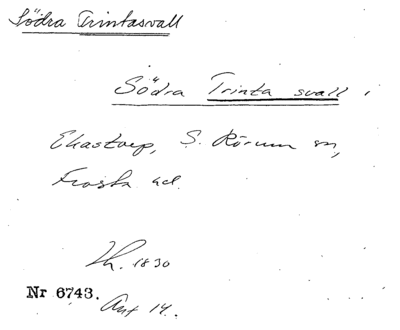 Södra Trintasvall
Södra Trinta svall
Ekastorp, S. Rörum sn,
Frosta hd.
Lh. 1830
Nr 6743.
Ant 14.